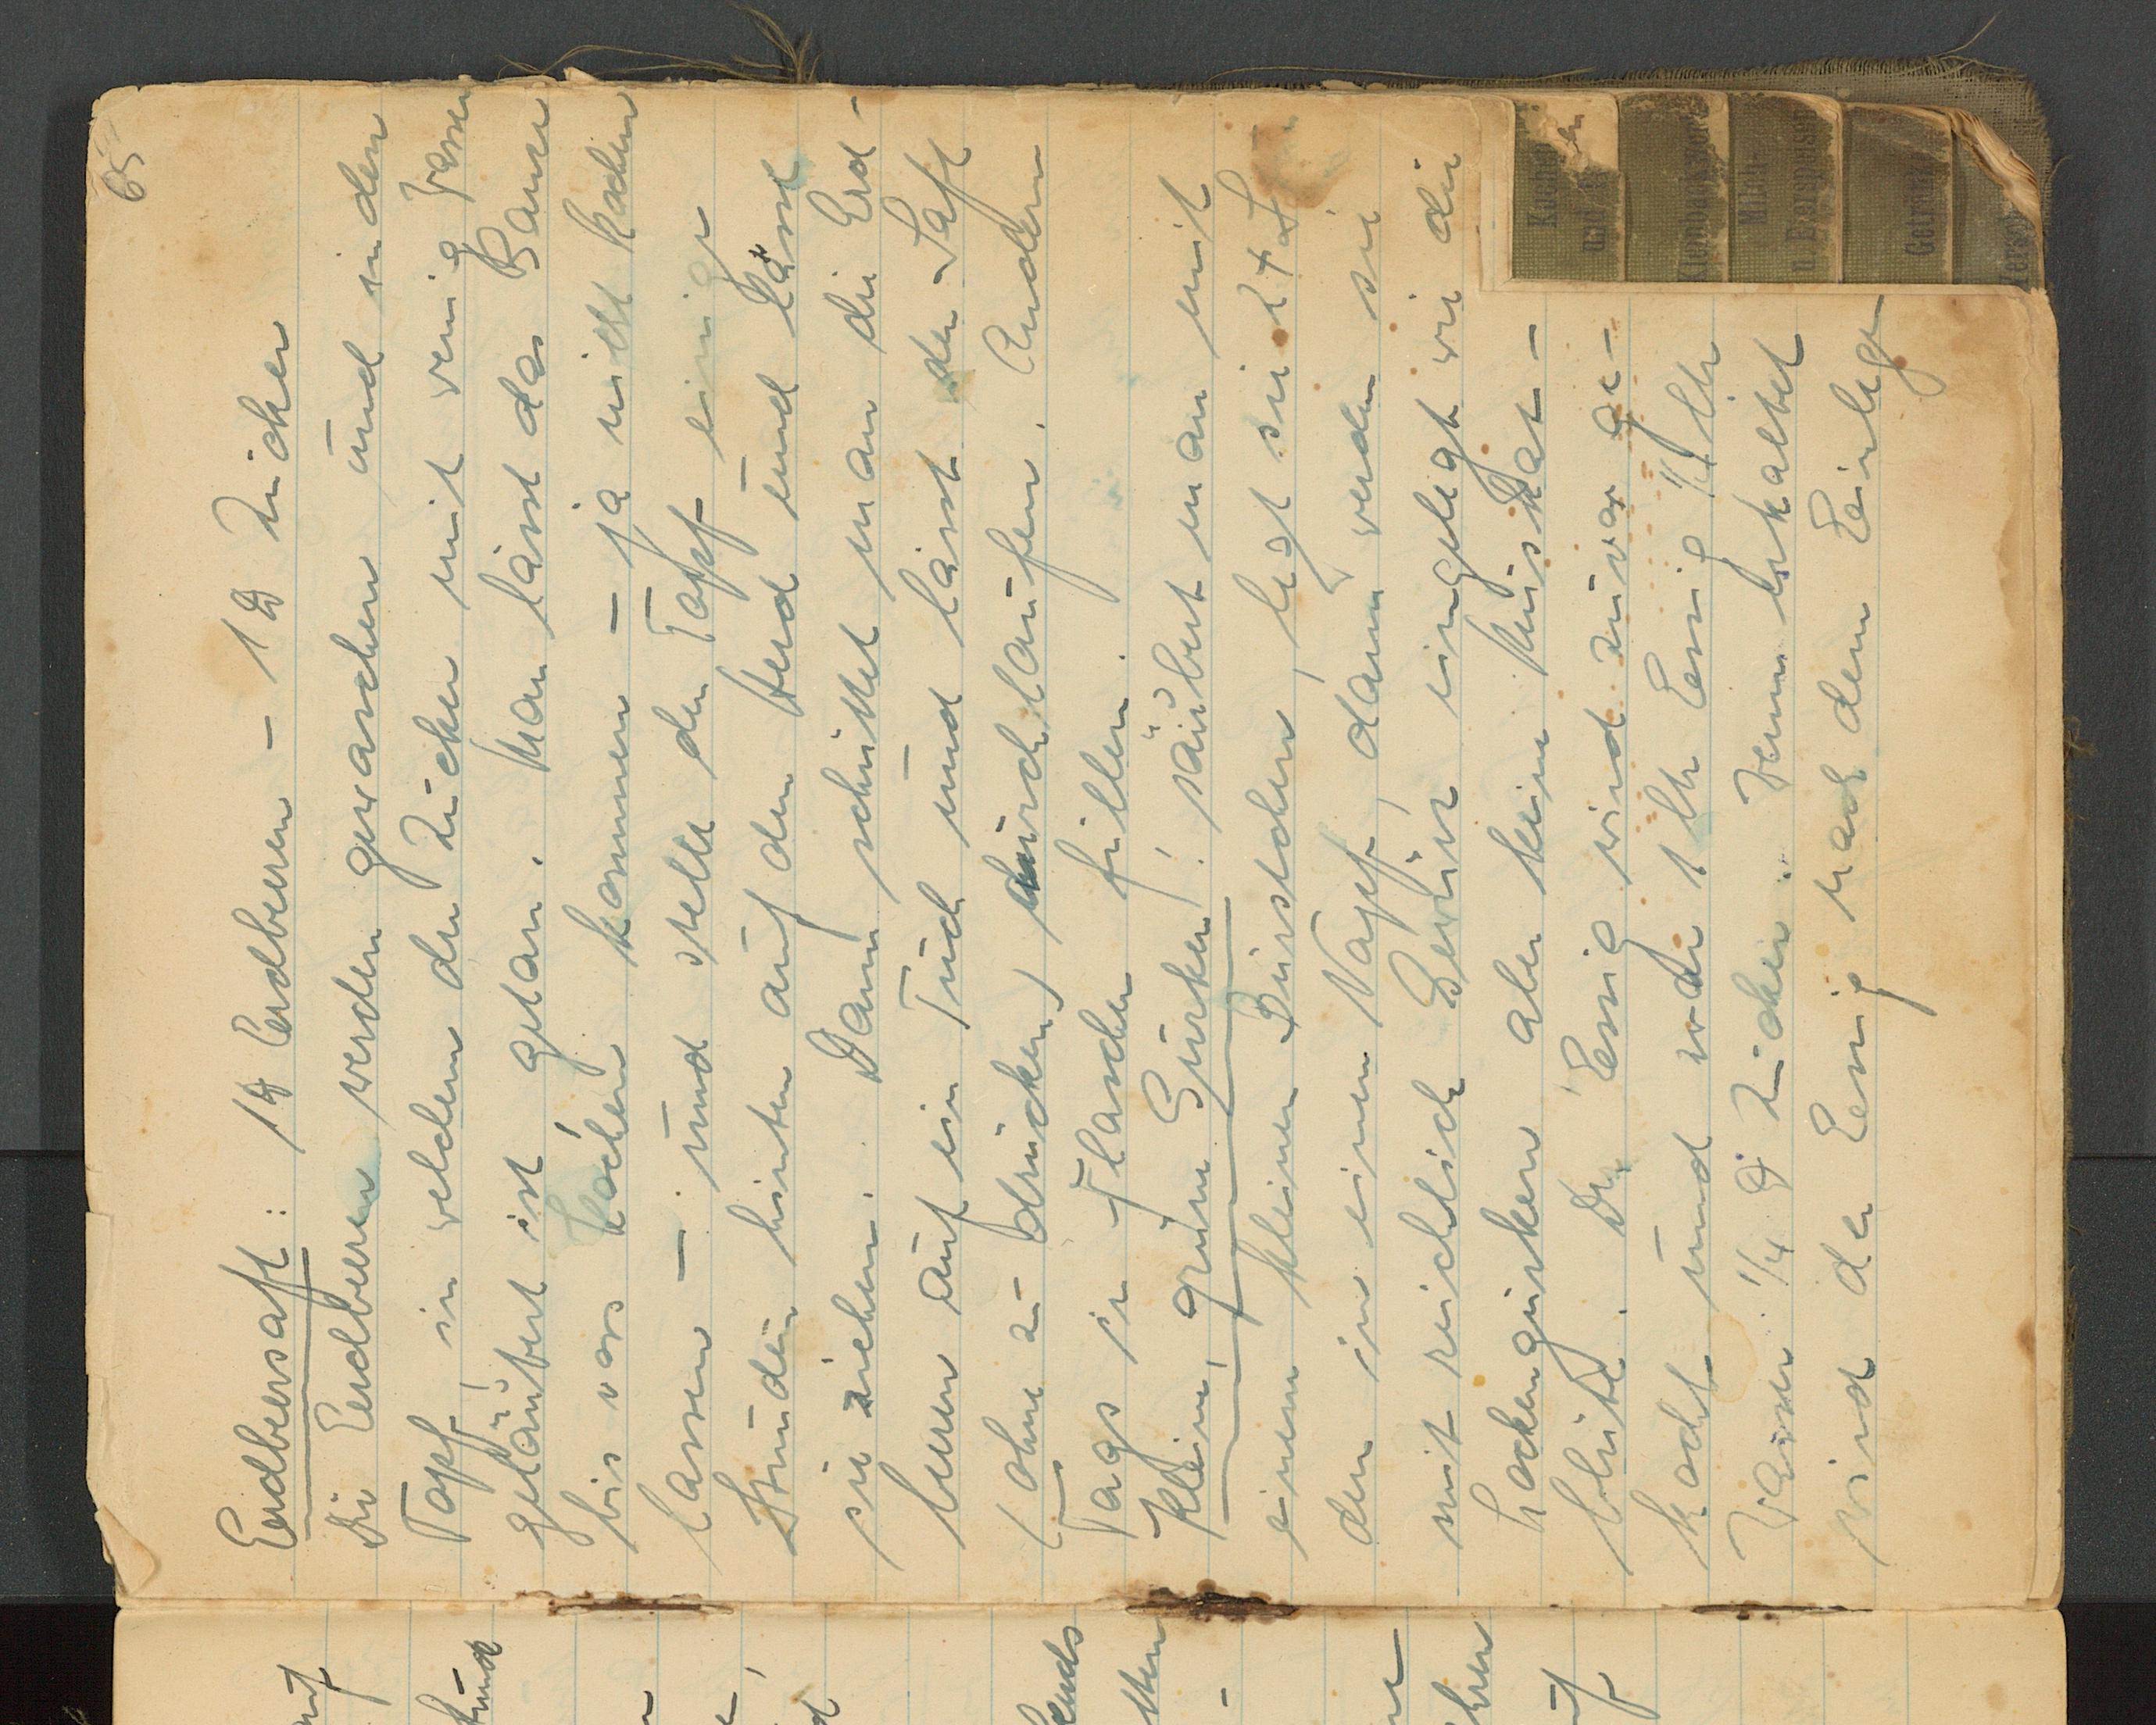 65
Erdbeersaft: 1 ℔ Erdbeeren - 1 ℔ Zucker
Die Erdbeeren werden gewaschen und in den
Topf, in welchem der Zucker mit wenig Wasser
geläutert ist getan. Man lässt das Ganze
bis vors Kochen kommen - ja nicht kochen
lassen - und stelle den Topf einige
Stunden hinten auf den Herd und lässt
sie ziehen. Dann schüttet man die Erd-
beeren auf ein Tuch und lässt den Saft
(ohne zu drücken) durchlaufen. Andern
Tags in Flaschen füllen.
Kleine, grüne Gurken: säubert man mit
einem kleinen Bürstchen, legt sie 24 St
den in einen Napf, dann werden sie
mit reichlich Gewürz eingelegt wie die
Kochengurken aber keine Muskat-
blüte. Der Essig wird zuvor ge-
kocht und zwar 1 ltr Essig 1/4 ltr
Wasser 1/4 ℔ Zucker. Wenn erkaltet
wird der Essig nach dem Einlegen
Kuchen
und
Kleinbackwerk
Milch-
u. Eierspeisen
Getränke
auf
-
-
-